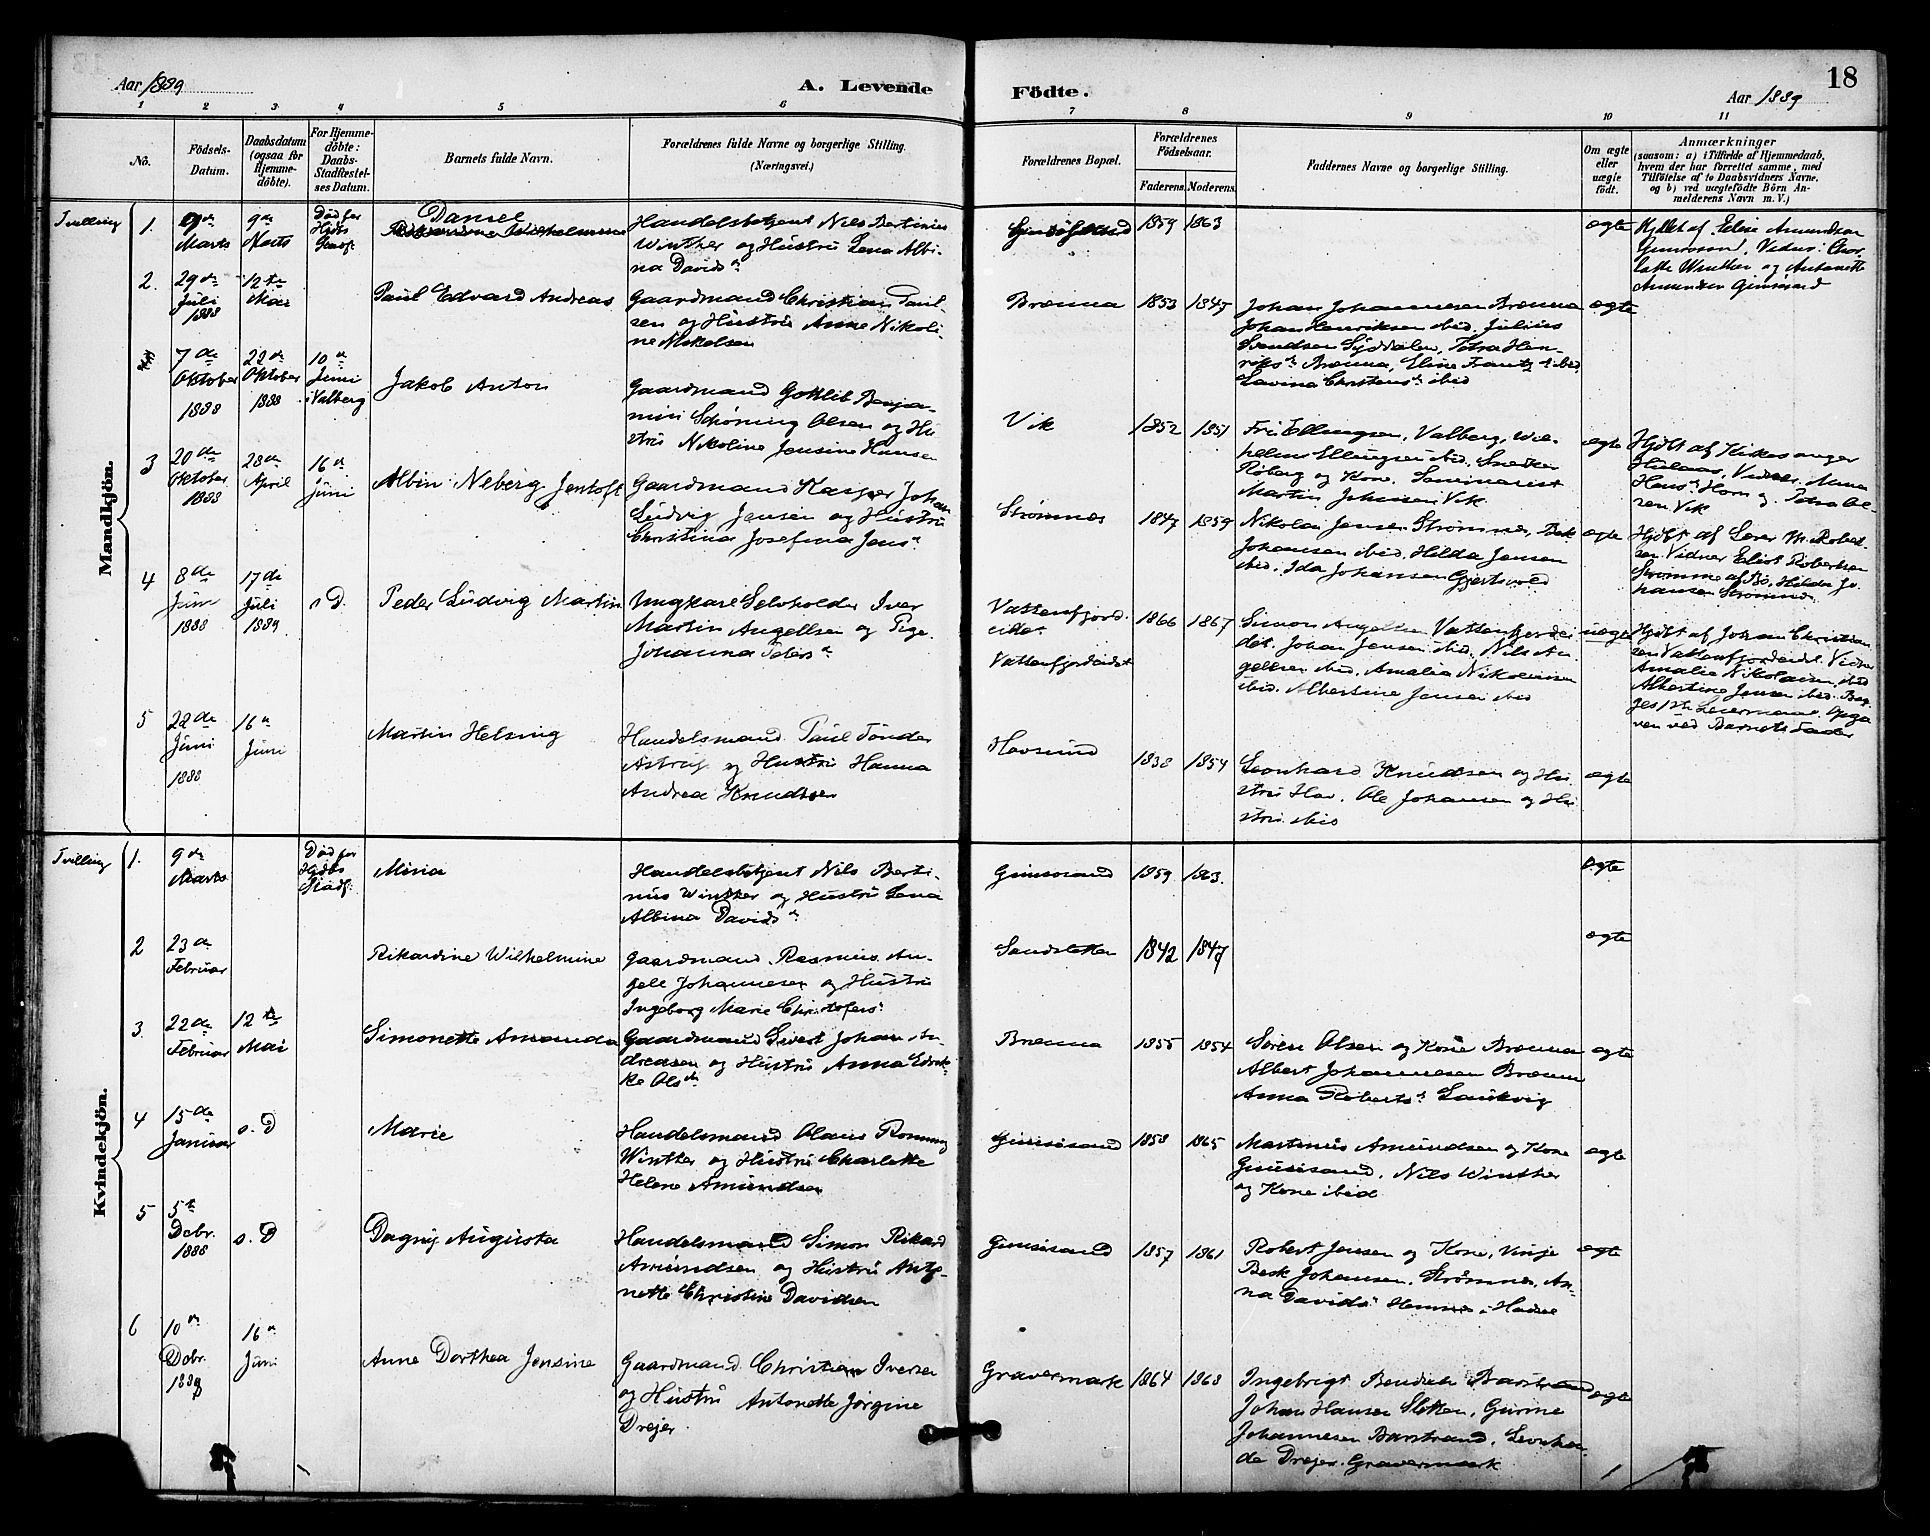 Aar 1889
A. Levende
Födte.
Aar 1889
18
1 2 3 4 5 6 7 8 9 10 11
No.
Födsels-
Datum.
Daabsdatum
(ogsaa for
Hjemme-
döbte).
For Hjemme-
döbte:
Daabs-
Stadfæstel-
ses Datum.
Barnets fulde Navn.
Forældrenes fulde Navne og borgerlige Stilling.
(Næringsvei.)
Forældrenes Bopæl.
Forældrenes
Födselsaar.
Faderens. Moderens.
Faddernes Navne og borgerlige Stilling.
Om ægte
eller
uægte
födt.
Anmærkninger
(saasom: a) i Tilfælde af Hjemmedaab,
hvem der har forrettet samme, med
Tilföielse af to Daabsvidners Navne,
og b) ved uægtefödte Börn An-
melderens Navn m. V.)
Mandkjön.
Tvilling
1.
9de
Marts
9de
Marts
Död før
Hjdbs
Stadf.
Daniel
Handelsbetjent Nils Bertinius
Winther og Hustru Lena Albi-
na Davidsdr
Gimsøsand
1859 1863
ægte
Hjdbt af Eline Amundsen
Gimsosand, Vidner: Char-
lotte Winther og Antonette
Amundsen Gimsosand
2.
29de
Juli
1888
12te
Mai
Paul Edvard Andreas
Gaardmand Christian Paul-
sen og Hustru Anne Nikoli-
ne Nikolsen
Brenna
1853 1847
Johan Johannesen Brenna
Johan Henriksen ibid. Julius
Svendsen Syddalen, Petra Hen-
riksdr Brenna, Eline Frantzdr ibid
Lavina Christensdr ibid
ægte
7de
Oktober
1888
22de
Oktober
1888
10de
Juni
i Valberg
Jakob Anton
Gaardmand Gotlib Benja-
min Schøning Olsen og Hu-
stru Nikoline Jensine Hansen
Vik
1852 1851
Ellingsen, Valberg, Wil-
helm Ellingsen ibid. Snedker
Roberg og Kone, Seminarist
Martin Johnsen Vik
ægte
Hjdbt af Kirkesanger
Vidner, 
Hansdr Horn og Petra Ol-
sen Vik
3
20de
Oktober
1888
28de
April
16de
Juni
Albin Neberg Jentoft
Gaardmand Kasper Johan
Ludvig Jensen og Hustru
Christina Josefina Jensdr
Strømnes
1847 1859
Nikolai Jensen Strømnes, Bek
Johansen ibid. Hilda Jensen
ibid. Ida Johansen Gjertsvold
ægte
Hjdbt af Lærer M. Robert-
sen Vidner Eliot Robertsen
Strømme af Bø, Hilda Jo-
hansen Strømnes
4
8de
Juni
1888
17de
Juli
1889
s. D.
Peder Ludvig Martin
Ungkarl Selvholder Iver
Martin Angellsen og Pige
Johanna Petersdr
Vattenfjord-
eidet
Vattenfjordeidet
1866 1867
Simon Angellsen Vattenfjordei-
det. Johan Jensen ibid. Nils An-
gellsen ibid. Amalie Nikolaisen
ibid. Albertine Jensen ibid
uægte
Hjdbt af Johan Christian-
sen Vattenfjordeidet. Vidner
Amalie Nikolaisen ibid
Albertine Jensen ibid. Beg-
ges 1ste Leiermaal. Opgi-
ven ved Barnets Fader
5
22de
Juni
1888
16de
Juni
Martin Helsing
Handelsmand Paul Tønder
Astrup og Hustru Hanna
Andrea Knudsen
Hovsund
1838 1854
Leonhard Knudsen og Hu-
stru Hov. Ole Johansen og Hu-
stru ibid
ægte
Kvindekjön.
Tvilling
1.
9de
Marts
Död før
Hjdbs
Stadf.
Mina
Handelsbetjent Nils Berti-
nius Winther og Hustru Lena
Albina Davidsdr
Gimsosand
1859 1863.
ægte
2
23de
Februar
Rikardine Wilhelmine
Gaardmand Rasmus An-
gell Johannesen og Hustru
Ingeborg Marie Christofersdr
Sandsletten
1842 1847
ægte
3.
22de
Februar
12te
Mai
Simonette Amanda
Gaardmand Sivert Johan An-
dreasen og Hustru Anna Edvik-
ke Olsdr
Brenna
1855 1854
Søren Olsen og Kone Brenna
Albert Johannesen Brenna
Anna Robertsdr Laukvig
ægte
4
15de
Januar
s. D
Marie
Handelsmand Olaus Ronning
Winther og Hustru Charlotte
Helene Amundsen
Gimsøsand
1858 1865
Martinus Amundsen og Kone
Gimsøsand, Nils Winther
og Kone ibid
ægte
5
5te
Decbr.
1888
s. D
Dagny Augusta
Handelsmand Simon Rikard
Amundsen og Hustru Anto-
nette Christine Davidsen
Gimsøsand
1857 1861
Robert Jensen og Kone, Vinje
Beck Johansen, Strømnes, An-
na Davidsdr
ægte
6
10de
Decbr.
1888
16de
Juni
Anne Dorthea Jensine
Gaardmand Christian Iversen
og Hustru Antonette Jørgine
Drejer
Gravermark
1864 1868
Ingebrigt Bendiks Barstrand
Johan Hansen Sletten, Gurine
Johannesen Barstrand, Leonhar-
de Drejer Gravermark
ægte